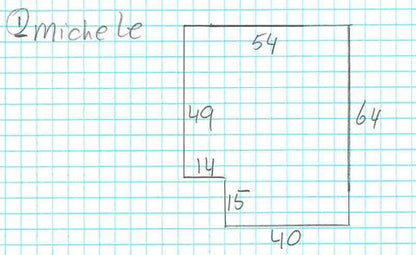 ① Michele
54
49
64
14
15
40